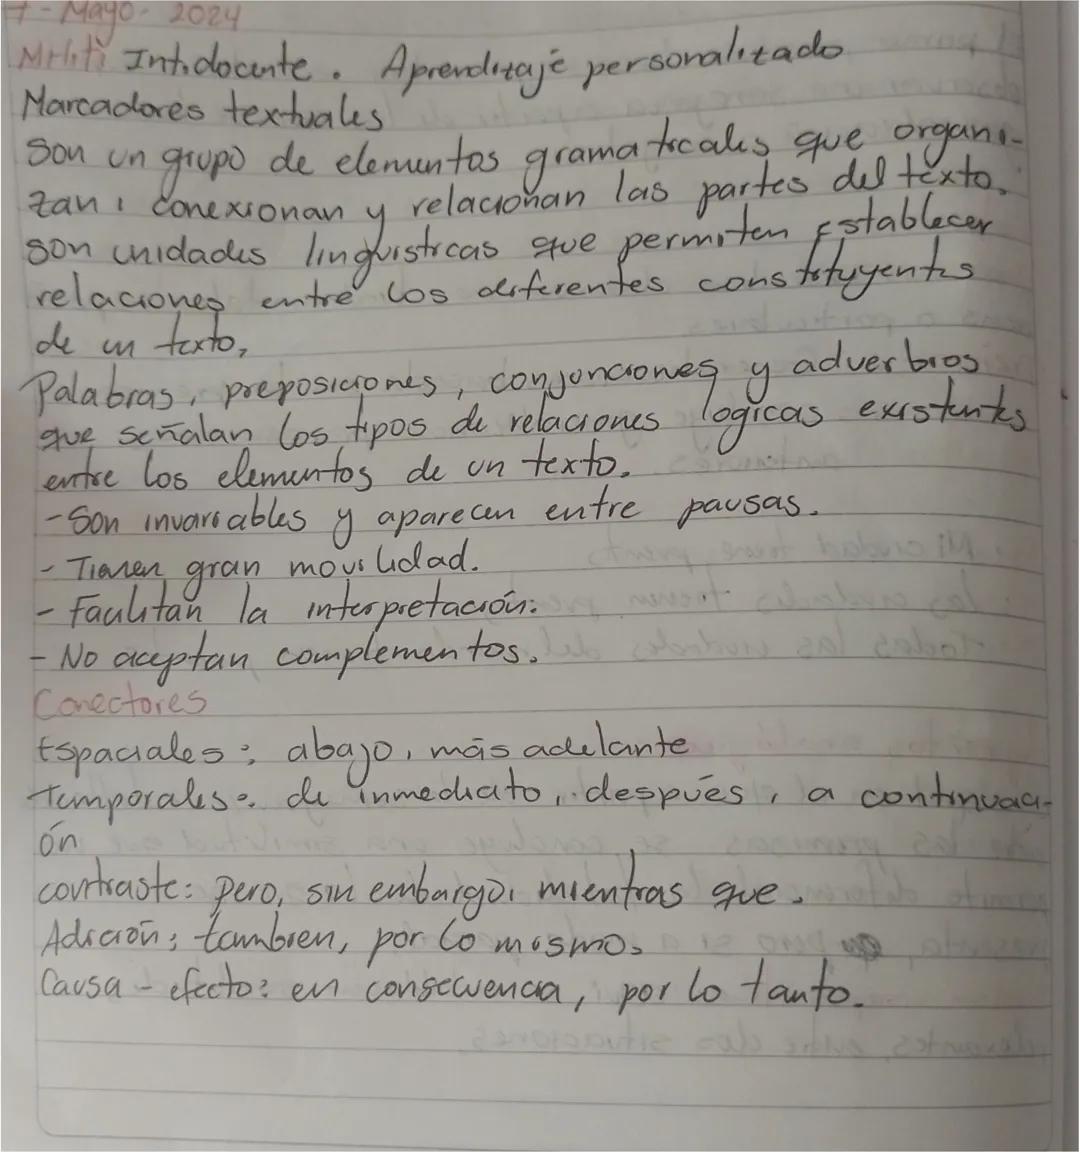 7-Mayo-2024
Intidocente. Aprendizaje personalizado
Marcadores textuales
Son un grupo de elementos gramaticales que organi-
zan, conexionan y relacionan las partes del texto.
Son unidades lingüisticas que permiten Establecer
relaciones entre los diferentes constituyentes
de un texto,
Palabras, preposiciones, conjunciones y adverbios
que señalan los tipos de relaciones logicas existentes
entre los elementos de un texto.
-Son invariables y aparecen entre pausas.
- Tienen gran movilidad.
- Facilitan la interpretación.
- No aceptan complementos.
Conectores
Espaciales: abajo, más adelante
Temporales: de inmediato, después, a continuaci-
ón
contraste: pero, sin embargo, mientras que.
Adición: tambien, por lo mismo.
Causa - efecto: en consecuencia, por lo tanto.